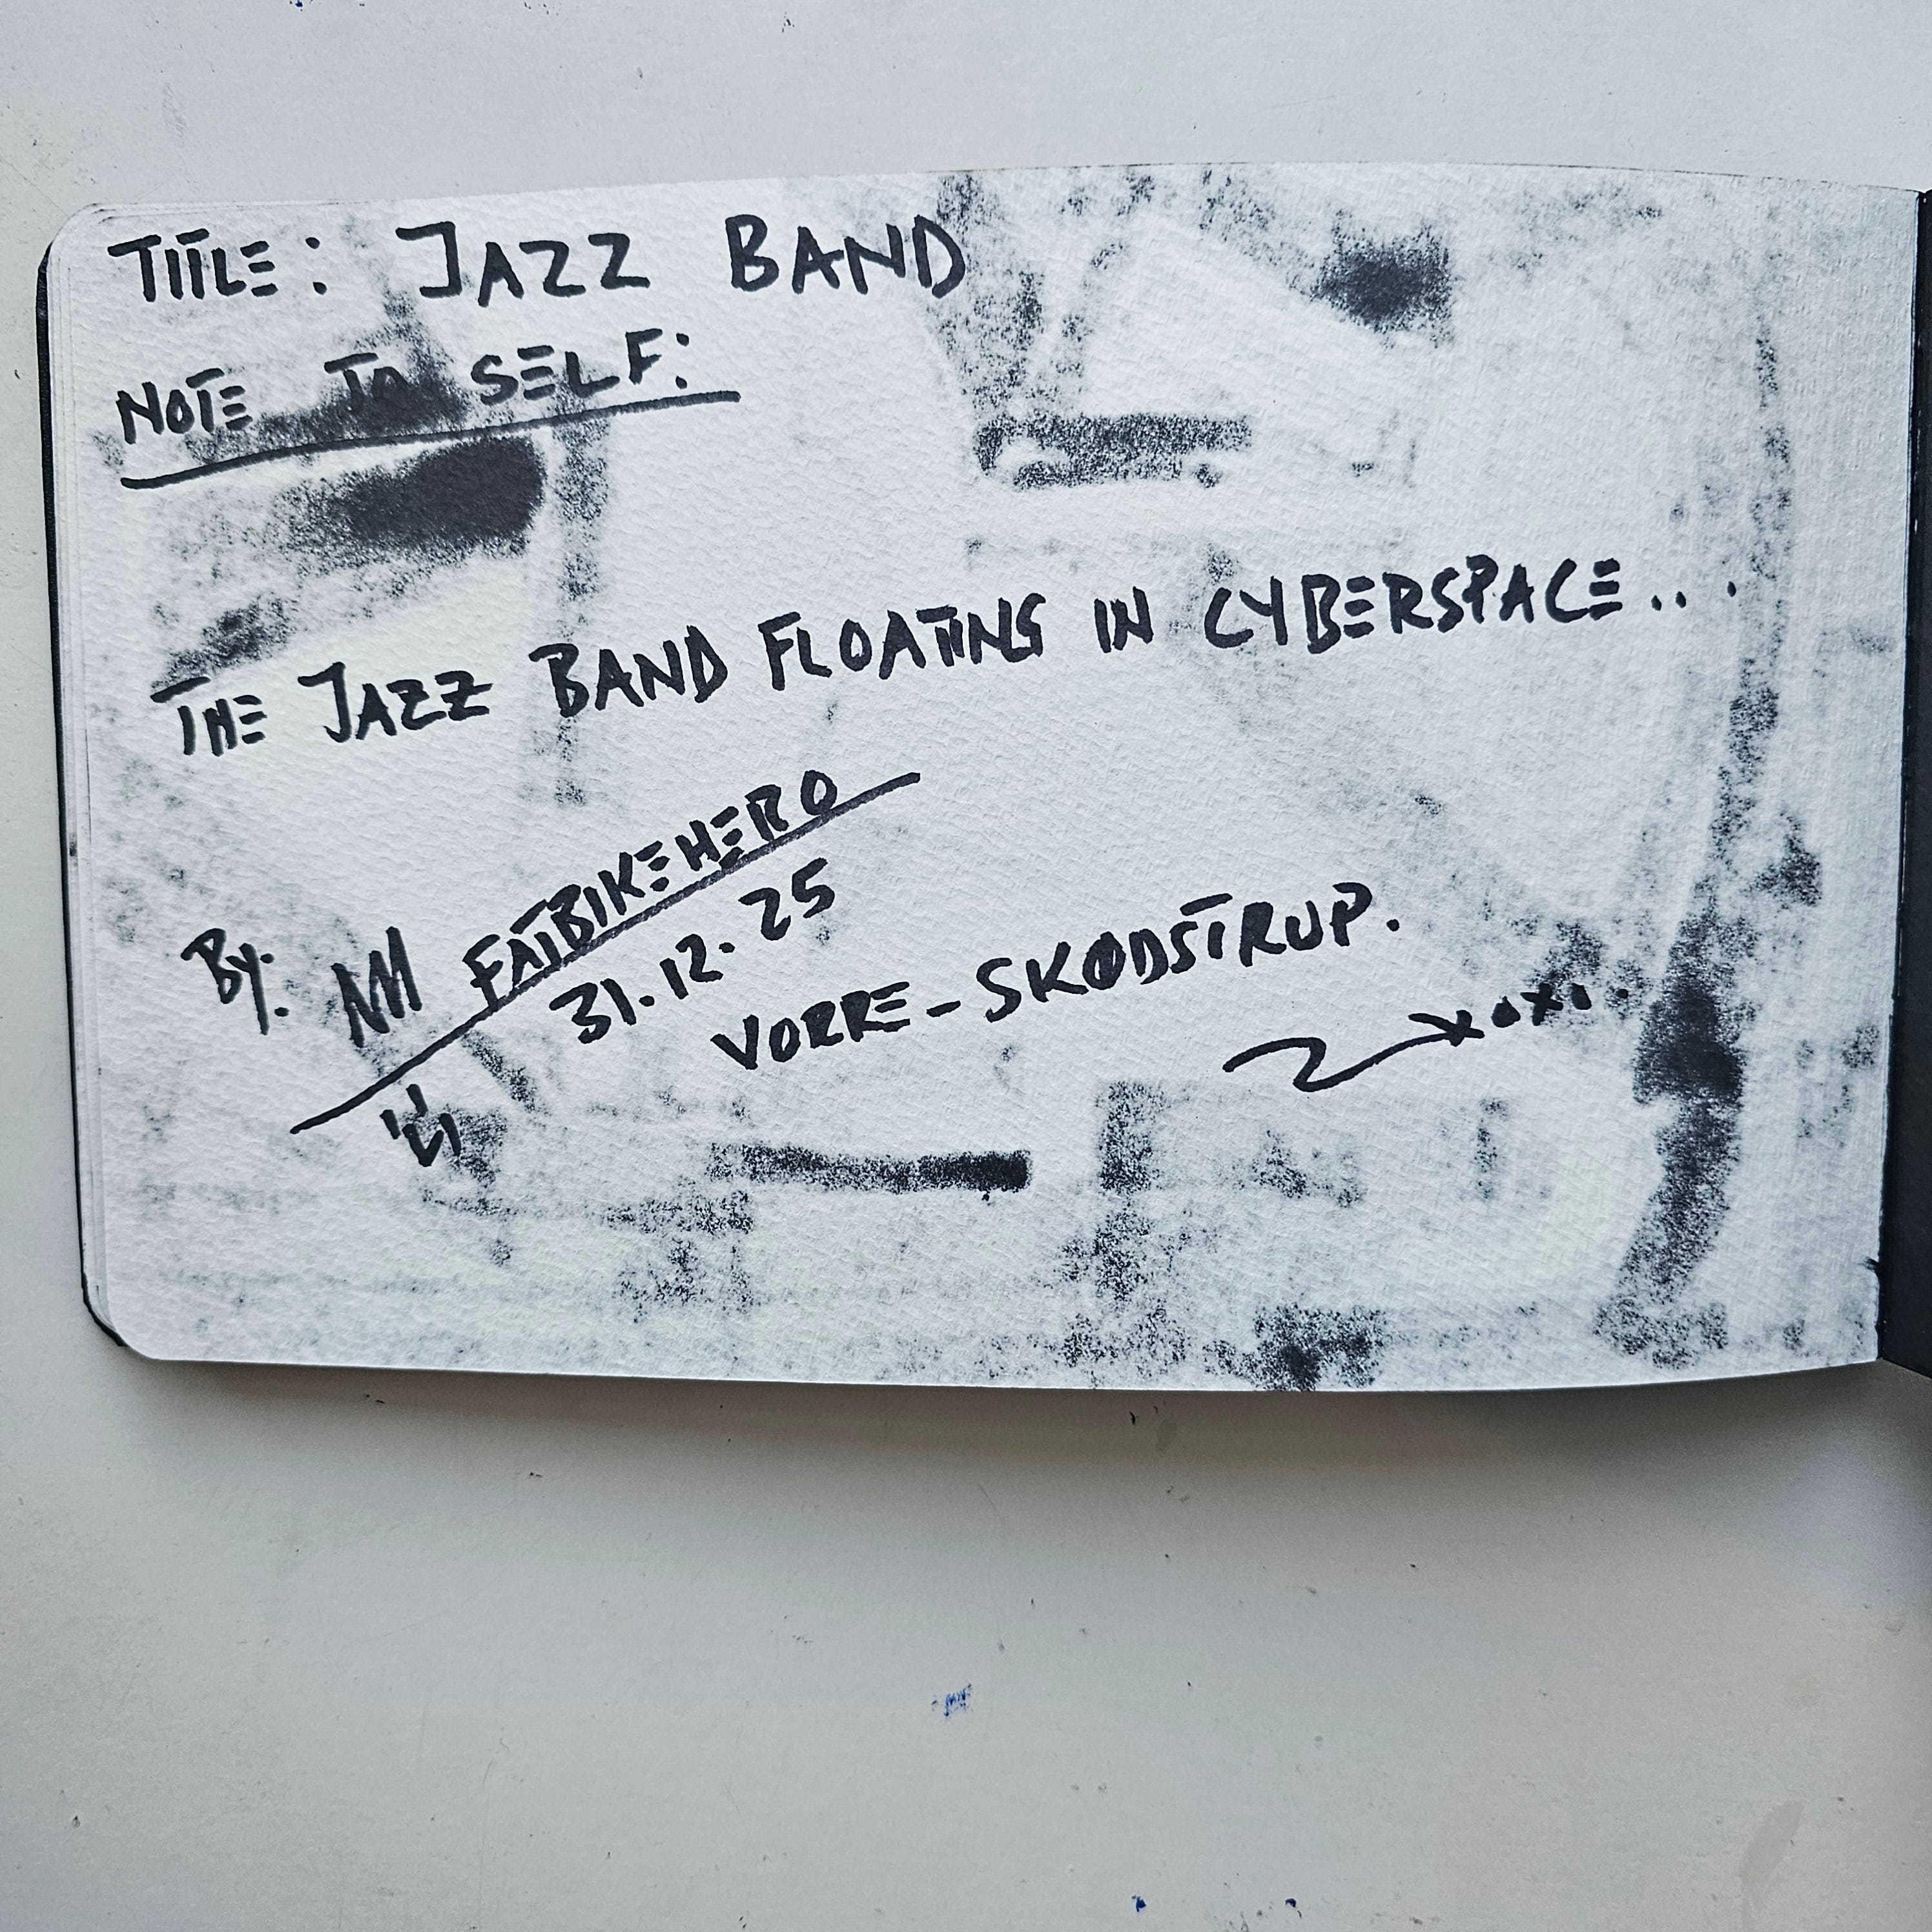 TITLE: JAZZ BAND
NOTE TO SELF:
THE JAZZ BAND FLOATING IN CYBERSPACE...
By: FATBIKEHERO
31.12.25
VORRE-SKØDSTRUP.